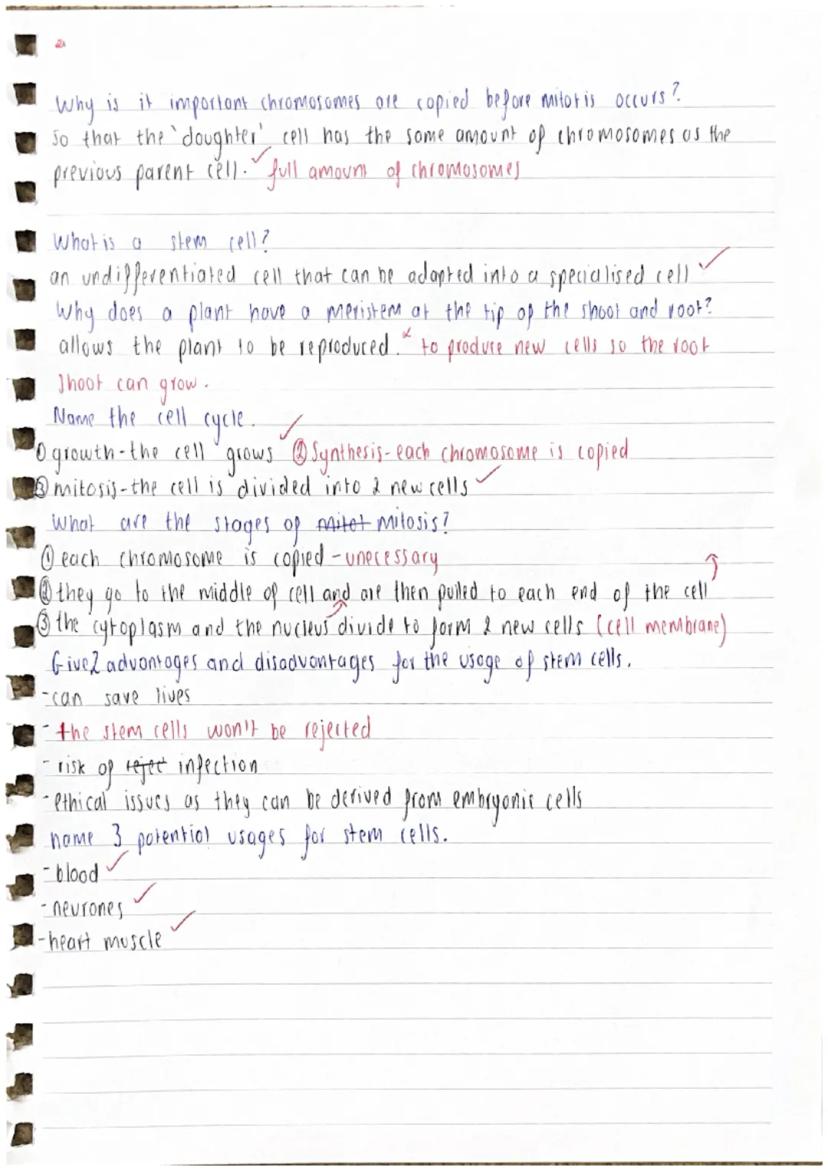 Why is it important chromosomes are copied before mitosis occurs?
So that the 'daughter' cell has the same amount of chromosomes as the
previous parent cell. ✓ full amount of chromosomes
What is a stem cell?
an undifferentiated cell that can be adapted into a specialised cell ✓
Why does a plant have a meristem at the tip of the shoot and root?
allows the plant to be reproduced. x to produce new cells so the root
shoot can grow.
Name the cell cycle.
① growth - the cell grows ✓ ② Synthesis - each chromosome is copied
③ mitosis - the cell is divided into 2 new cells ✓
What are the stages of mitot mitosis?
① each chromosome is copied - unecessary
② they go to the middle of cell and are then pulled to each end of the cell
③ the cytoplasm and the nucleus divide to form 2 new cells (cell membrane)
Give 2 advantages and disadvantages for the usage of stem cells.
- can save lives
- the stem cells won't be rejected
- risk of reject infection
- ethical issues as they can be derived from embryonic cells
name 3 potential usages for stem cells.
- blood ✓
- neurones ✓
- heart muscle ✓